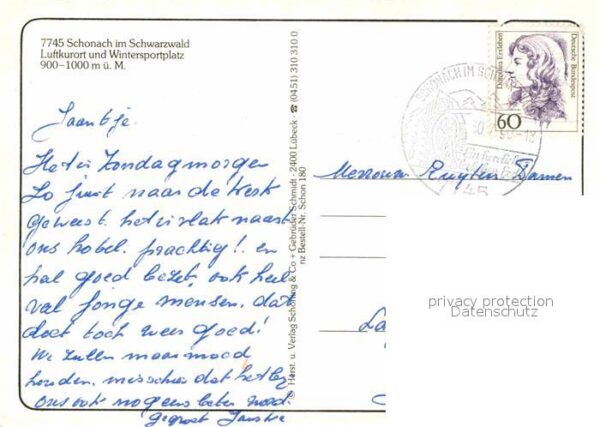 7745 Schonach im Schwarzwald
Luftkurort und Wintersportplatz
900–1000 m ü. M.
Jaantje.
Het is Zondagmorgen
zo juist naar de kerk
geweest. het is vlak naast
ons hotel. prachtig!. en
hal goed bezet, ook heel
val jonge mensen, dat
doet toch wees goed!
We zullen maar moed
houden. misschien dat het bij
ons ook nog eens beter word.
gegroet Janske
© Horst. u. Verlag Schöning & Co + Gebrüder Schmidt · 2400 Lübeck · ☎ (0451) 310 310 0
nz Bestell-Nr. Schon 180
Dorothea Erxleben
Deutsche Bundespost
60
SCHONACH IM SCH
7745
Mevrouw Damen
privacy protection
Datenschutz